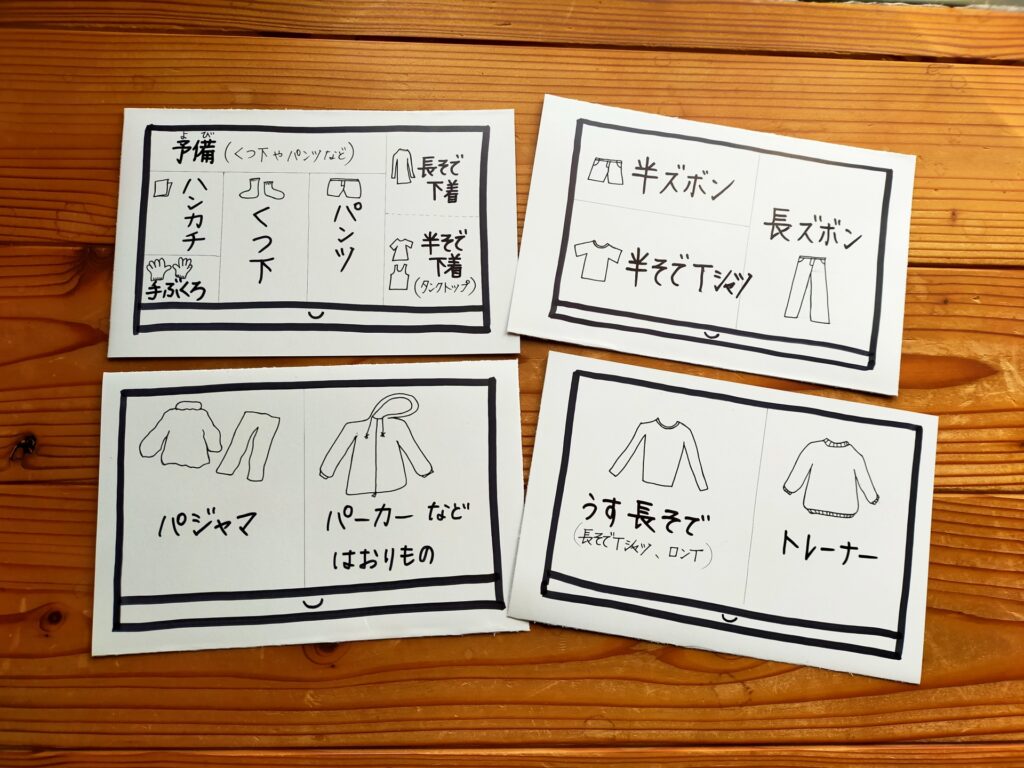 よび
予備(くつ下やパンツなど)
ハンカチ
手ぶくろ
くつ下
パンツ
長そで
下着
半そで
下着
(タンクトップ)
半ズボン
半そでTシャツ
長ズボン
パジャマ
パーカーなど
はおりもの
うす長そで
(長そでTシャツ、ロンT)
トレーナー